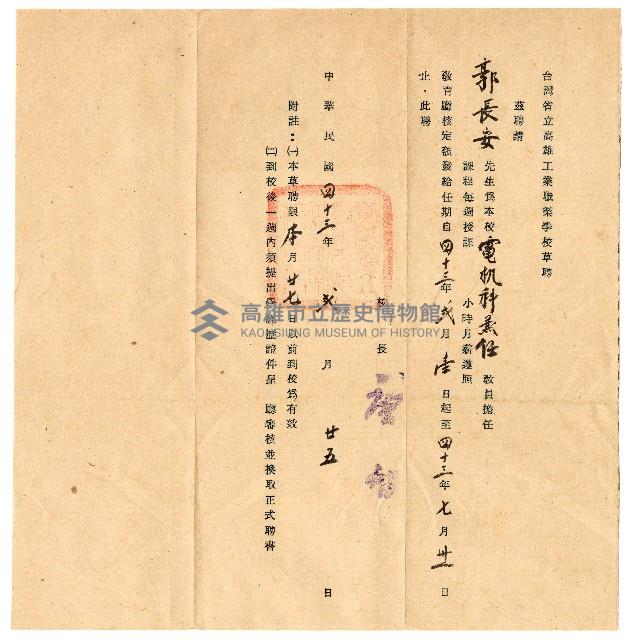 台灣省立高雄工業職業學校草聘
茲聘請
郭長安先生為本校電机科兼任教員擔任
課程每週授課 小時月薪遵照
教育廳核定額發給任期自四十三年弍月壹日起至四十三年七月卅一日
止・此聘
校長
中華民國四十三年弍月廿五日
附註：㈠本草聘限本月廿七日以前到校為有效
㈡到校後一週內須提出學經歷證件呈 廳審核並換取正式聘書
高雄市立歷史博物館
KAOHSIUNG MUSEUM OF HISTORY